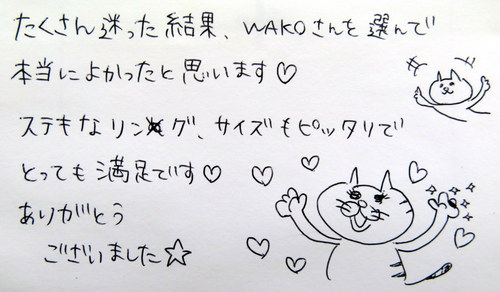 たくさん迷った結果、WAKOさんを選んで
本当によかったと思います♡
ステキなリング、サイズもピッタリで
とっても満足です♡
ありがとう
ございました☆